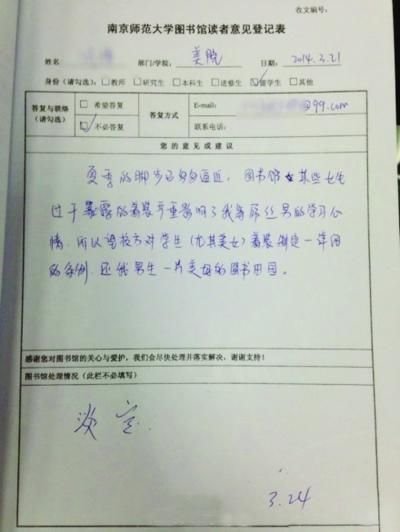 收文编号:
南京师范大学图书馆读者意见登记表
姓名 部门/学院: 美院 日期: 2014.3.21
身份(请勾选): □教师 □研究生 □本科生 □进修生 ☑留学生 □其他
答复与联络 □希望答复 答复方式 E-mail: @99.com
(请勾选) ☑不必答复 联系电话:
您的意见或建议
夏季的脚步已匆匆逼近,图书馆某些女生
过于暴露的着装严重影响了我等屌丝男的学习心
情,所以望校方对学生(尤其美女)着装制定一详细
的条例,还我男生一片美好的图书田园。
感谢您对图书馆的关心与爱护,我们会尽快处理并落实解决,谢谢支持!
图书馆处理情况(此栏不必填写)
淡定.
3.24